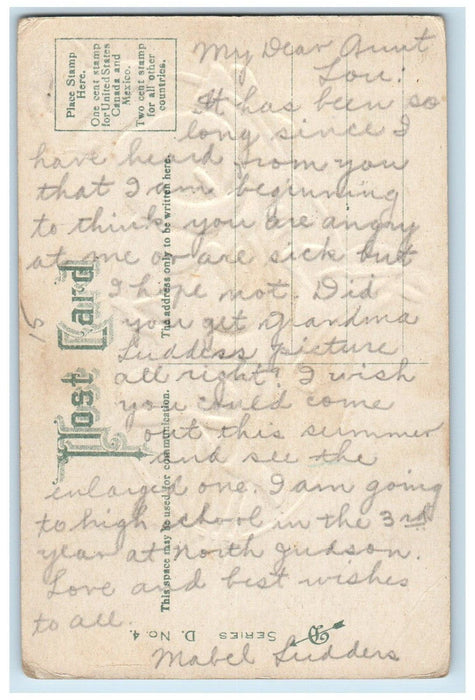 My Dear Aunt
Lou.
It has been so
long since I
have heard from you
that I am beginning
to think you are angry
at me or are sick but
I hope not. Did
you get Grandma
Ludders picture
all right? I wish
you could come
out this summer
and see the
enlarged one. I am going
to high school in the 3rd
year at North Judson.
Love and best wishes
to all.
Mabel Ludders
Place Stamp
Here.
One cent stamp
for United States
Canada and
Mexico.
Two cent stamp
for all other
countries.
Post Card
The address only to be written here.
This space may be used for communication.
SERIES D. No 4.